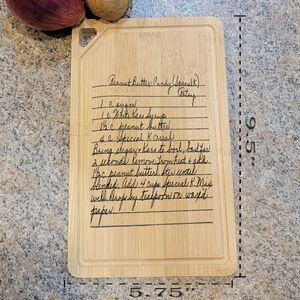 Peanut Butter Candy (Special K)
Patsy
1 c sugar
1 c White Karo syrup
1½ c peanut butter
4 c Special K cereal
Bring sugar & Karo to boil, boil for
2 seconds, remove from heat & add
1½ c peanut butter. Stir until
blended. Add 4 cups Special K. Mix
well. Drop by teaspoon on waxed
paper.
9.5"
5.75"